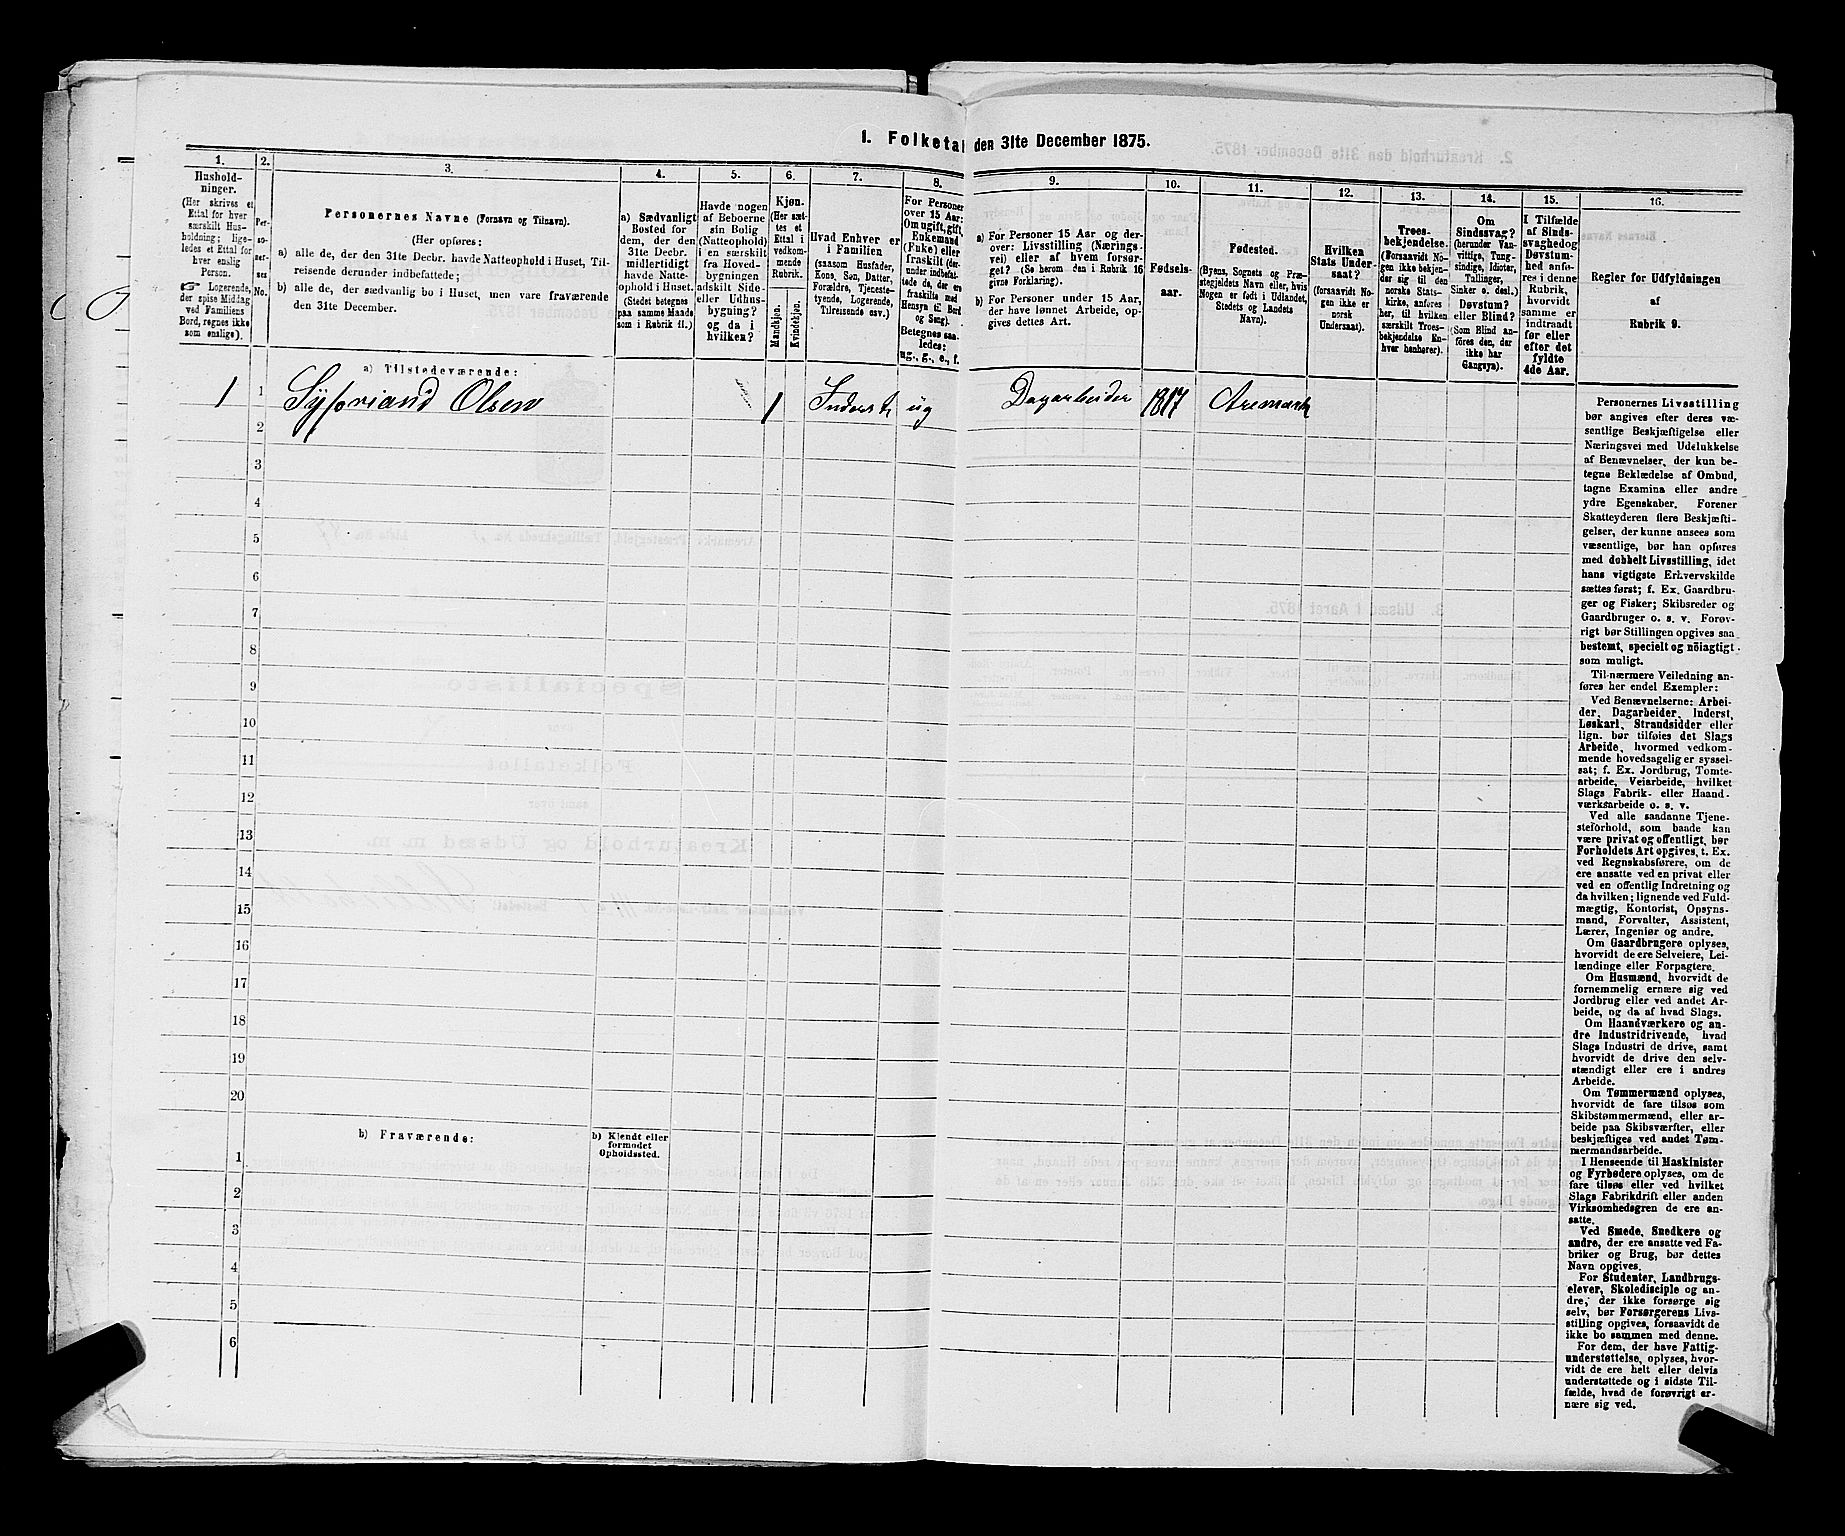 1. Folketal den 31te December 1875.
1.
Hushold-
ninger.
(Her skrives et
Ettal for hver
særskilt Hus-
holdning; lige-
ledes et Ettal for
hver enslig
Person.
☞ Logerende,
der spise Middag
ved Familiens
Bord, regnes ikke
som enslige).
2.
Per-
so-
ner-
nes
No.
3.
Personernes Navne (Fornavn og Tilnavn).
(Her opføres:
a) alle de, der den 31te Decbr. havde Natteophold i Huset, Til-
reisende derunder indbefattede;
b) alle de, der sædvanlig bo i Huset, men vare fraværende
den 31te December.
4.
a) Sædvanligt
Bosted for
dem, der den
31te Decbr.
midlertidigt
havde Natte-
ophold i Huset.
(Stedet betegnes
paa samme Maade
som i Rubrik 11.)
5.
Havde nogen
af Beboerne
sin Bolig
(Natteophold)
i en særskilt
fra Hoved-
bygningen
adskilt Side-
eller Udhus-
bygning?
og da i
hvilken?
6.
Kjøn.
(Her sæt-
tes et
Ettal i
vedkom-
mende
Rubrik.
Mandkjøn.
Kvindekjøn.
7.
Hvad Enhver er
i Familien
(saasom Husfader,
Kone, Søn, Datter,
Forældre, Tjeneste-
tyende, Logerende,
Tilreisende osv.).
8.
For Personer
over 15 Aar:
Om ugift, gift,
Enkemand
(Enke) eller
fraskilt (der-
under indbefat-
tede de, der ere
fraskilte med
Hensyn til Bord
og Seng).
Betegnes saa-
ledes:
ug., g., e., f.
9.
a) For Personer 15 Aar og der-
over: Livsstilling (Nærings-
vei) eller af hvem forsør-
get? (Se herom den i Rubrik 16
givne Forklaring).
b) For Personer under 15 Aar,
der have lønnet Arbeide, op-
gives dettes Art.
10.
Fødsels-
aar.
11.
Fødested.
(Byens, Sognets og Præ-
stegjeldets Navn eller, hvis
Nogen er født i Udlandet,
Stedets og Landets
Navn).
12.
Hvilken
Stats Under-
saat?
(forsaavidt No-
gen ikke er
norsk
Undersaat).
13.
Troes-
bekjendelse.
(Forsaavidt No-
gen ikke bekjen-
der sig til den
norske Stats-
kirke, anføres
her, til hvilken
særskilt Troes-
bekjendelse En-
hver henhører).
14.
Om
Sindssvag?
(herunder Van-
vittige, Tung-
sindige, Idioter,
Tallinger,
Sinker o. desl.)
Døvstum?
eller Blind?
(Som Blind an-
føres den, der
ikke har
Gangsyn).
15.
I Tilfælde
af Sinds-
svaghedog
Døvstum-
hed anfø-
res i denne
Rubrik,
hvorvidt
samme er
indtraadt
før eller
efter det
fyldte
4de Aar.
16.
Regler for Udfyldningen
af
Rubrik 9.
a) Tilstedeværende:
1 1 Syforiand Olsen 1 Inderst ug Dagarbeider 1817 Aremark
2
3
4
5
6
7
8
9
10
11
12
13
14
15
16
17
18
19
20
b) Fraværende:
b) Kjendt eller
formodet
Opholdssted.
1
2
3
4
5
6
Personernes Livsstilling
bør angives efter deres væ-
sentlige Beskjæftigelse eller
Næringsvei med Udelukkelse
af Benævnelser, der kun be-
tegne Beklædelse af Ombud,
tagne Examina eller andre
ydre Egenskaber. Forener
Skatteyderen flere Beskjæfti-
gelser, der kunne ansees som
væsentlige, bør han opføres
med dobbelt Livsstilling, idet
hans vigtigste Erhvervskilde
sættes først; f. Ex. Gaardbru-
ger og Fisker; Skibsreder og
Gaardbruger o. s. v. Forøv-
rigt bør Stillingen opgives saa
bestemt, specielt og nöiagtigt
som muligt.
Til nærmere Veiledning an-
føres her endel Exempler:
Ved Benævnelserne: Arbei-
der, Dagarbeider, Inderst,
Løskarl, Strandsidder eller
lign. bør tilføies det Slags
Arbeide, hvormed vedkom-
mende hovedsagelig er syssel-
sat; f. Ex. Jordbrug, Tomte-
arbeide, Veiarbeide, hvilket
Slags Fabrik- eller Haand-
værksarbeide o. s. v.
Ved alle saadanne Tjene-
steforhold, som baade kan
være privat og offentligt, bør
Forholdets Art opgives, t. Ex.
ved Regnskabsførere, om de
ere ansatte ved en privat eller
ved en offentlig Indretning og
da hvilken; lignende ved Fuld-
mægtig, Kontorist, Opsyns-
mand, Forvalter, Assistent,
Lærer, Ingeniør og andre.
Om Gaardbrugere oplyses,
hvorvidt de ere Selveiere, Lei-
lændinge eller Forpagtere.
Om Husmænd, hvorvidt de
fornemmelig ernære sig ved
Jordbrug eller ved andet Ar-
beide, og da af hvad Slags.
Om Haandværkere og an-
dre Industridrivende, hvad
Slags Industri de drive, samt
hvorvidt de drive den selv-
stændigt eller ere i andres
Arbeide.
Om Tømmermænd oplyses,
hvorvidt de fare tilsøs som
Skibstømmermænd, eller ar-
beide paa Skibsværfter, eller
beskjæftiges ved andet Tøm-
mermandsarbeide.
I Henseende til Maskinister
og Fyrbødere oplyses, om de
fare tilsøs eller ved hvilket
Slags Fabrikdrift eller anden
Virksomhedsgren de ere an-
satte.
Ved Smede, Snedkere og
andre, der ere ansatte ved Fa-
briker og Brug, bør dettes
Navn opgives.
For Studenter, Landbrugs-
elever, Skoledisciple og an-
dre, der ikke forsørge sig
selv, bør Forsørgerens Livs-
stilling opgives, forsaavidt de
ikke bo sammen med denne.
For dem, der have Fattig-
understøttelse, oplyses, hvor-
vidt de ere helt eller delvis
understøttede og i sidste Til-
fælde, hvad de forøvrigt er-
nære sig ved.